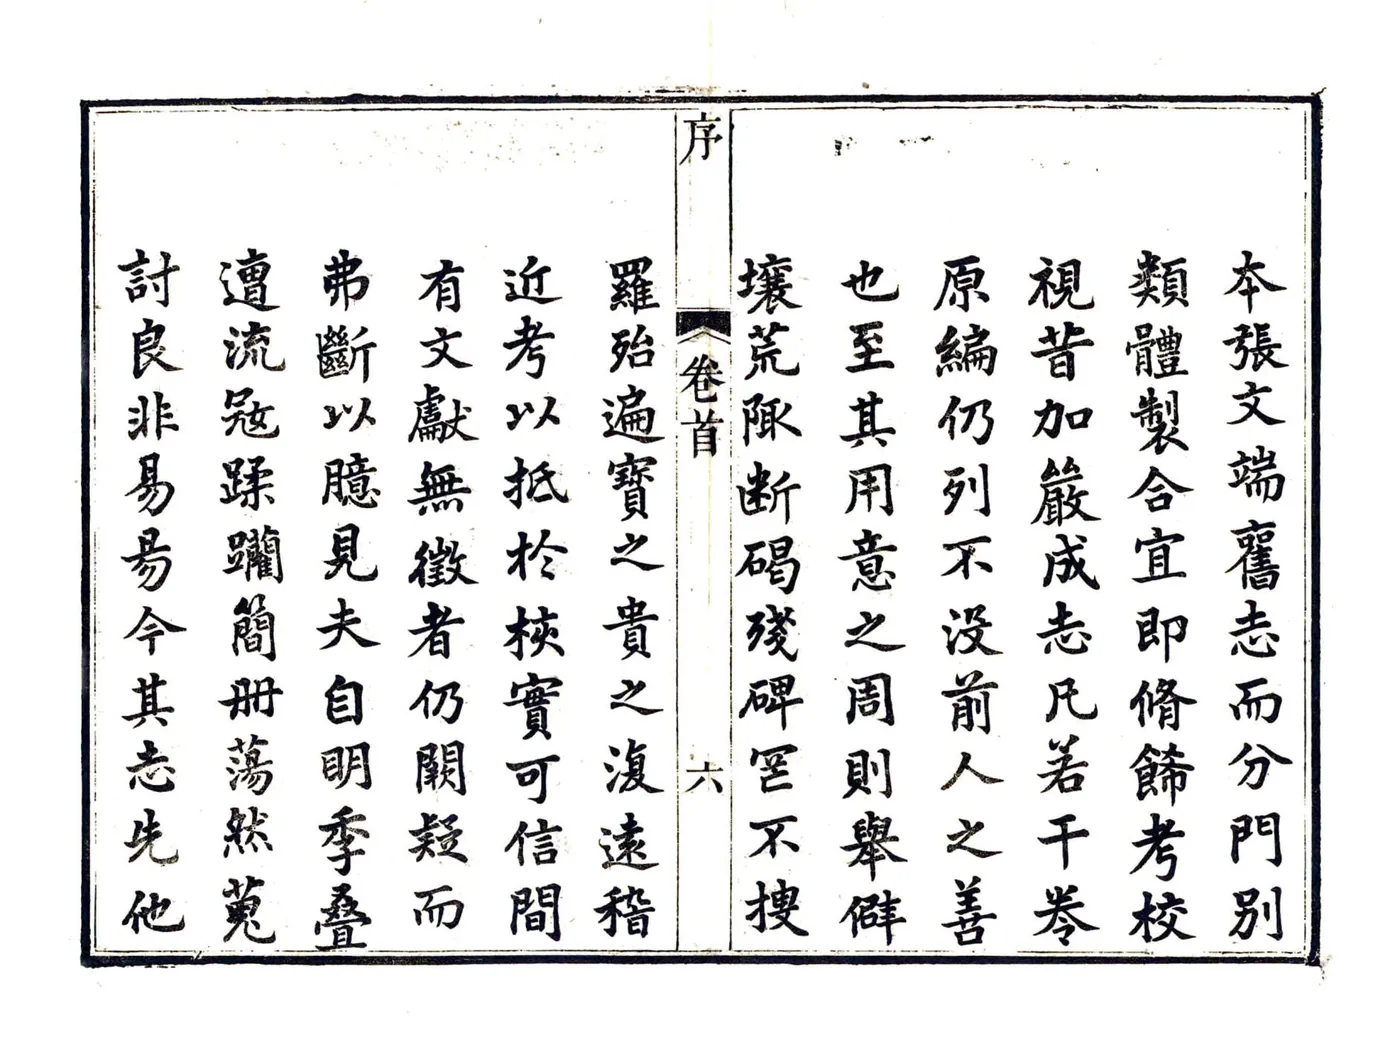 本張文端舊志而分門別
類體製合宜即脩餙考校
視昔加嚴成志凡若干卷
原編仍列不没前人之善
也至其用意之周則舉僻
壤荒陬断碣殘碑罔不搜
序
卷首
六
羅殆遍寶之貴之復遠稽
近考以抵於核實可信間
有文獻無徵者仍闕疑而
弗斷以臆見夫自明季叠
遭流冦蹂躪簡册蕩然蒐
討良非易易今其志先他